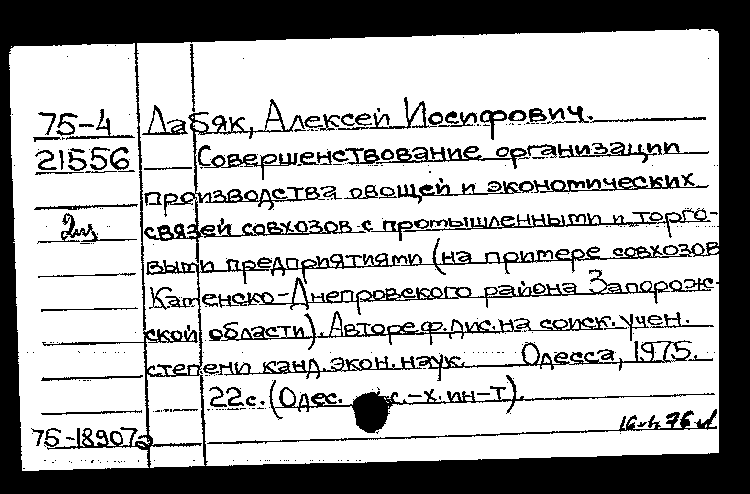 75-4 Лабяк, Алексей Иосифович.
21556 Совершенствование организации
производства овощей и экономических
2 из связей совхозов с промышленными и торго-
выми предприятиями (на примере совхозов
Каменско-Днепровского района Запорож-
ской области). Автореф. дис. на соиск. учен.
степени канд. экон. наук. Одесса, 1975.
22с. (Одес. с.-х. ин-т).
75-18907а